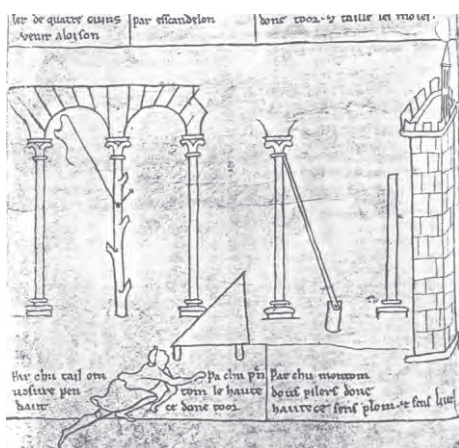 ser de quatre cuins
venir aloison
par escandelon
done toor. ⁊ taille les moles.
Par chu tail om
vosure pen
dant
Pa chu pren
tom le haute
ce done toor
Par chu montom
dous pilers done
hautece sens plom ⁊ sens livel